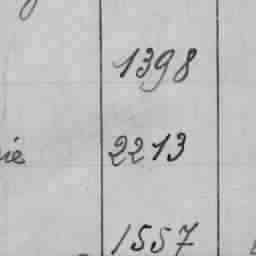 1398
2213
1557